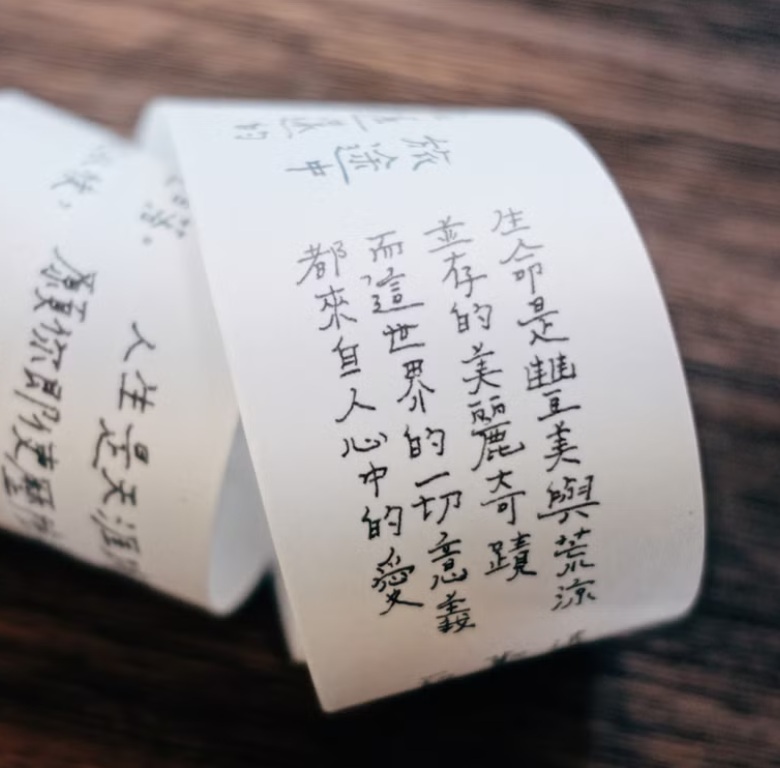 旅途中
生命是豐美與荒涼
並存的美麗奇蹟
而這世界的一切意義
都來自人心中的愛
人生是天涯
願你即使